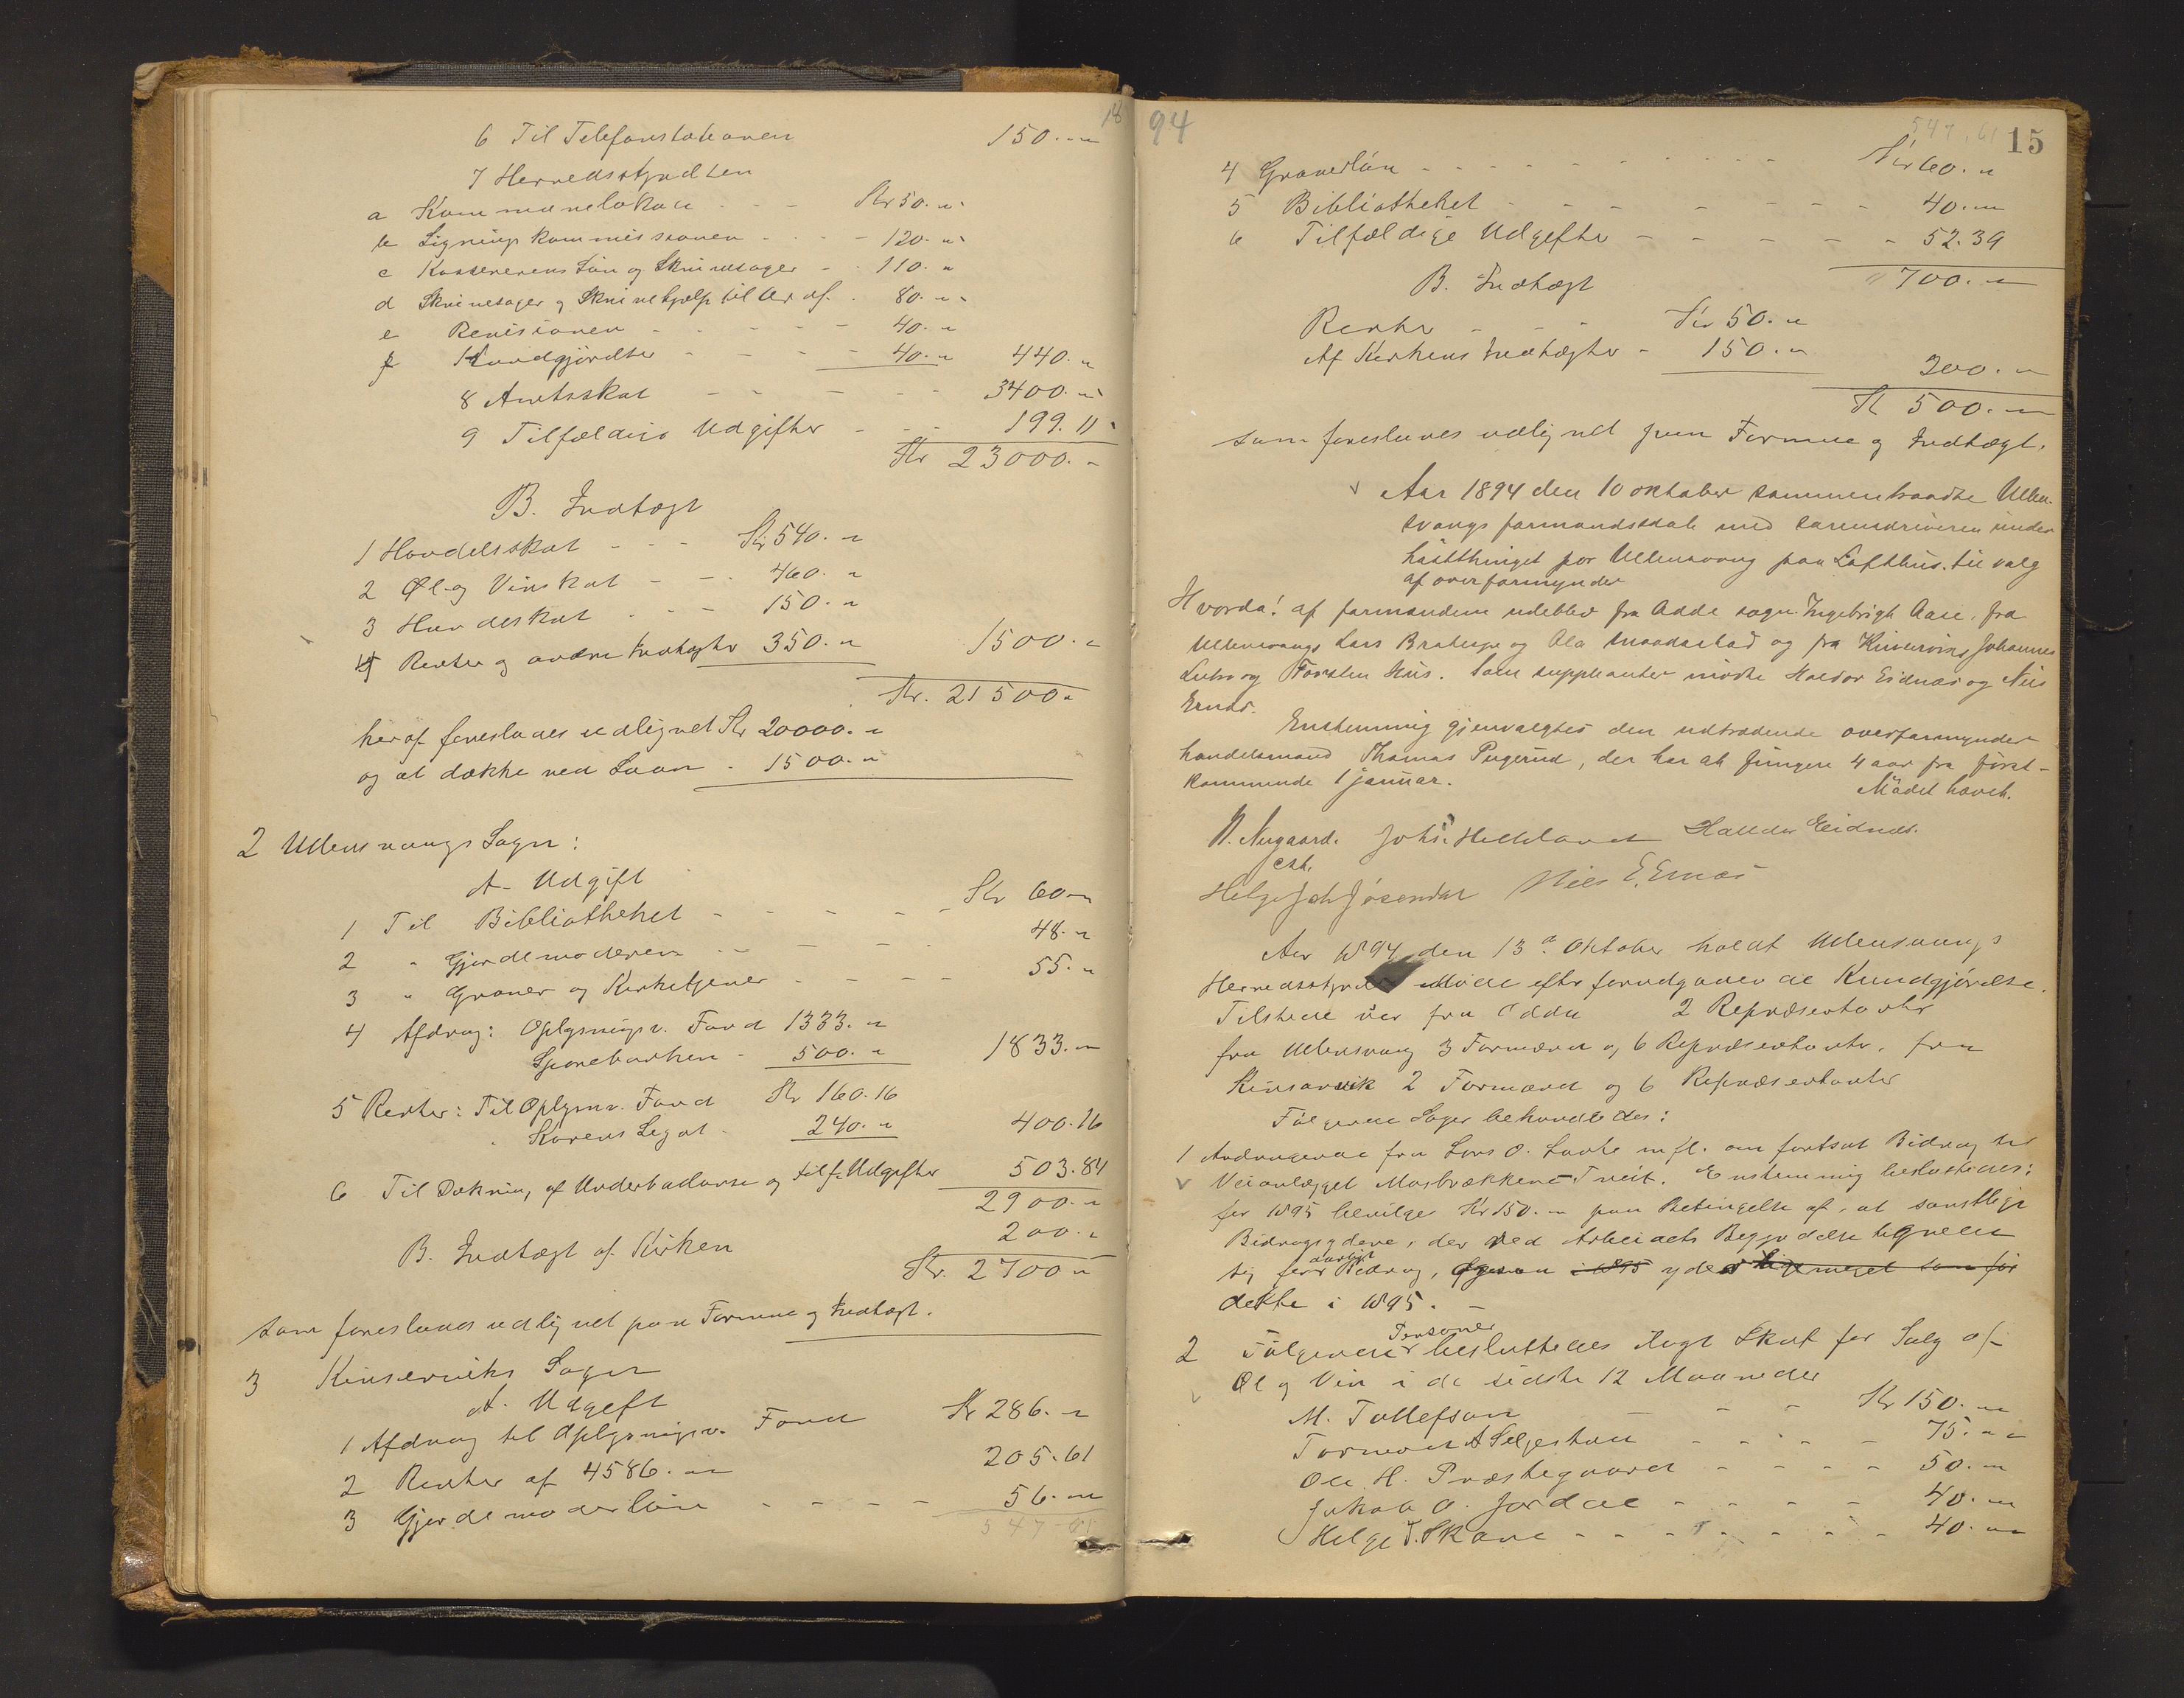 18
6 Til Telefonstationen 150. "
7 Herredsstyrelsen
a Kommunelokale - - Kr 50. "
b Ligningskommissionen - - 120. "
c Kassererens Løn og Skrivesager - 110. "
d Skrivesager og Skrivehjælp til Ordf. 80. "
e Revisionen - - - 40. "
f Kundgjørelser - - - 40. " 440. "
8 Amtsskat - - - 3400. "
9 Tilfældige Udgifter - - 199. 11
Kr 23000. "
B. Indtægt
1 Handelsskat - - - Kr 540. "
2 Øl og Vinskat - - 460. "
3 Hundeskat - - 150. "
4 Renter og andre Indtægter 350. " 1500. "
Kr. 21500 "
heraf foreslaaes udlignet Kr 20000. "
og at dække ved Laan - 1500. "
2 Ullensvangs Sogn:
A. Udgift
1 Til Bibliotheket - - - - Kr 60 "
2 " Gjordemoderen - - - 48. "
3 " Graver og Kirketjener - - - 55. "
4 Afdrag: Oplysningsv. Fond 1333. "
Sparebanken - 500. " 1833. "
5 Renter: Til Oplysnv. Fond Kr 160.16
" Karens Legat - 240. " 400.16
6 Til Dækning af Underbalanse og tilf. Udgifter 503.84
2900. "
B. Indtægt af Kirken 200. "
Kr. 2700 "
som foreslaaes udlignet paa Formue og Indtægt.
3 Kinserviks Sogn
A. Udgift
1 Afdrag til Oplysningsv. Fond Kr 286. "
2 Renter af 4586. " 205.61
3 Gjordemoderløn - - - - 56. "
547-61
94
547.61 15
4 Graverløn - - - - - - Kr 60. "
5 Bibliotheket - - - - - - 40. "
6 Tilfældige Udgifter - - - - - 52.39
700. "
B. Indtægt
Renter - - - Kr 50. "
Af Kirkens Indtægter - 150. " 200. "
Kr 500. "
som foreslaaes udlignet paa Formue og Indtægt.
Aar 1894 den 10 oktober sammentraadte Ullen-
svangs formandskab med sorenskriveren under
høstthinget for Ullensvang paa Lofthus til valg
af overformynder
Hvorda! af formændene udeblev fra Odde sogn Ingebrigt Aase, fra
Ullensvang Lars Bratespe og Ola Maadalad og fra Kinservik Johannes
Lutro og Torsten Hus. Som suppleanter mødte Haldor Eidnæs og Nils
Ernæs.
Enstemmig gjenvalgtes den udtrædende overformynder
handelsmand Thomas Pugerud, der har at fungere 4 aar fra først-
kommende 1 januar.
Mødet hævet.
N. Nygaard. Johs. Helleland Haldor Eidnæs.
cst.
Helge Joh Jøsendal Niels E. Ernæs
Aar 1894 den 13de Oktober holdt Ullensvangs
Herredsstyrelse Møde efter forudgaaende Kundgjørelse.
Tilstede var fra Odda 2 Repræsentanter
fra Ullensvang 3 Formænd og 6 Repræsentanter, fra
Kinsarvik 2 Formænd og 6 Repræsentanter
Følgende Sager behandledes:
1 Andragende fra Lars O. Laate m.fl. om fortsat Bidrag til
Veianlægget Mosbrækkene-Tveit. Enstemmig besluttedes:
for 1895 bevilges Kr 150. " paa Betingelse af, at samtlige
Bidragsydere, der ved Arbeidets Begyndelse tegnede
sig for aarligt Bidrag, i 1895 yder ligemeget som før
dette i 1895. -
2 Følgende Personer besluttedes ilagt Skat for Salg af
Øl og Vin i de sidste 12 Maaneder
M. Tollefsen - - - Kr 150. "
Tormod A Seljestad - - - - 75. "
Ole H. Præstegaard - - - - 50. "
Jakob O. Jordal - - - - 40. "
Helge T. Skare - - - - - - 40. "